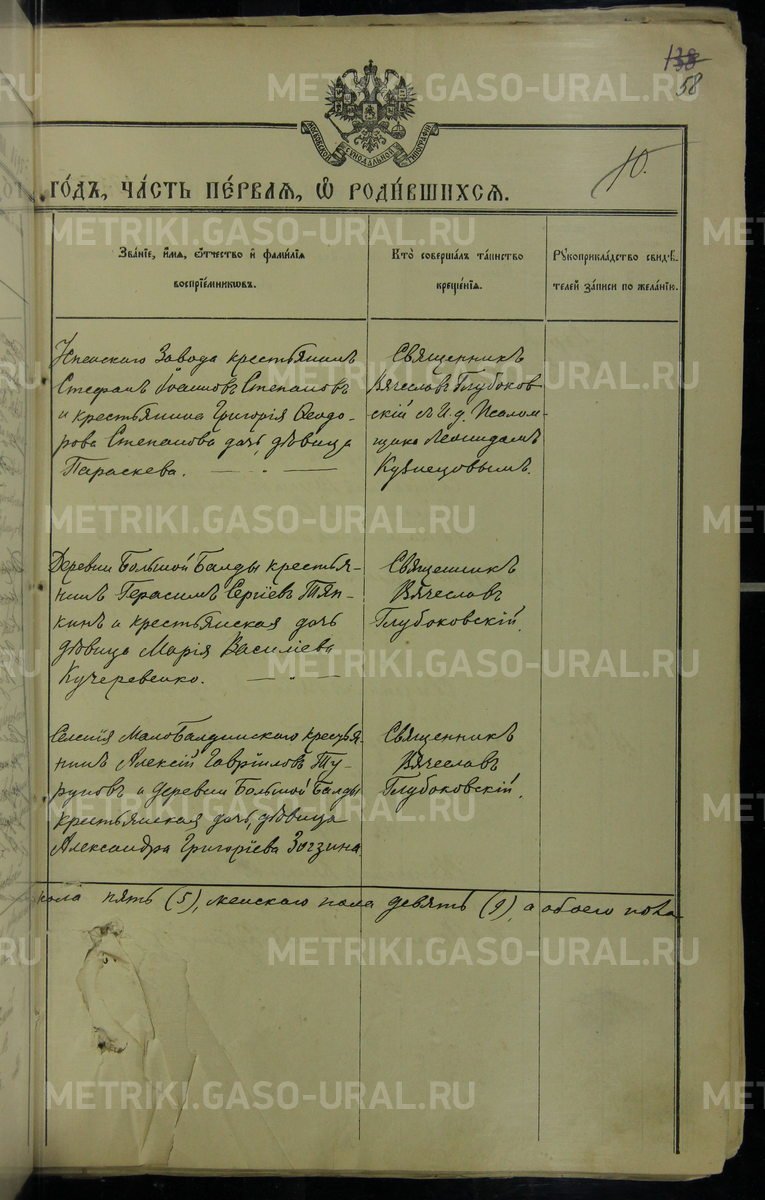 138
58
МОСКОВСКОЙ СѴНОДАЛЬНОЙ ТИПОГРАФІИ
10.
ГО́ДЪ, ЧА́СТЬ ПЕ́РВАЯ, Ѽ РОДИ́ВШИХСЯ.
Зва́нїе, и́мя, ѻ́тчество и҆ фами́лїя
воспрїе́мникѡвъ.
Кто̀ соверша́лъ та́инство
креще́нїя.
Рꙋкоприкла́дство свидѣ́-
телей за́писи по жела́нїю.
Завода крестьянинъ
Стефанъ Іоанновъ Степановъ
и крестьянина Григорія Ѳеодо-
рова Степанова дочь, дѣвица
Параскева.
Священникъ
Вячеславъ Глубоков-
скій съ И. д. Псалом-
щика Леонидомъ
Кузнецовымъ.
Деревни Большой Балды крестья-
нинъ Герасимъ Сергіевъ Тяп-
кинъ и крестьянская дочь
дѣвица Марія Василіева
Кучеревенко.
Священникъ
Вячеславъ
Глубоковскій.
Селенія МалоБалдинскаго крестья-
нинъ Алексій Гавріиловъ Ту-
руновъ и деревни Большой Балды
крестьянская дочь, дѣвица
Александра Григоріева Зогзина.
Священникъ
Вячеславъ
Глубоковскій.
пола пять (5), женскаго пола девять (9), а обоего пола
METRIKI.GASO-URAL.RU